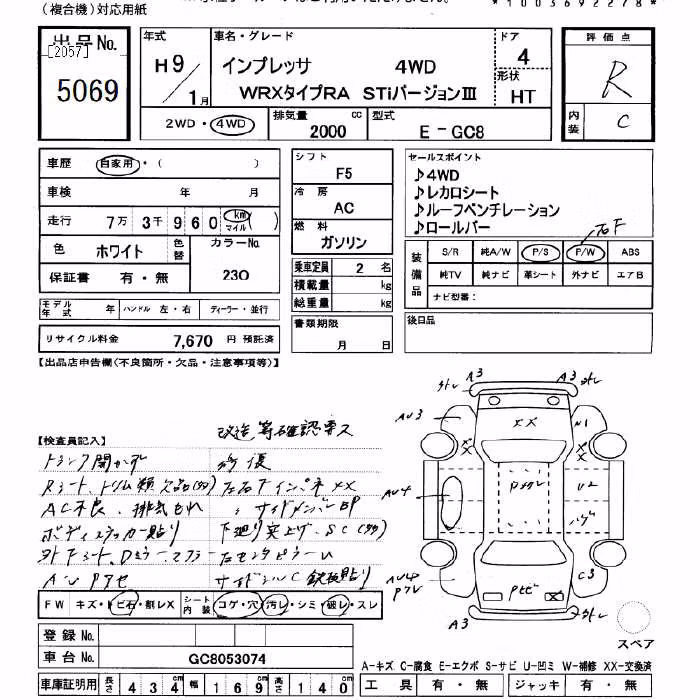 (複合機)対応用紙
*1003692278*
出品No.
[2057]
5069
年式
H9/1月
車名・グレード
インプレッサ 4WD
WRXタイプRA STiバージョンⅢ
ドア
4
形状
HT
2WD・4WD
排気量 2000 cc
型式 E-GC8
評価点
R
内装
C
車歴 自家用・( )
車検 年 月
走行 7万3千960 km マイル ( )
色 ホワイト 色替
カラーNo. 230
保証書 有・無
モデル年式 年 ハンドル 左・右 ディーラー・並行
リサイクル料金 7,670 円 預託済
シフト F5
冷房 AC
燃料 ガソリン
乗車定員 2 名
積載量 kg
総重量 kg
書類期限
月 日
セールスポイント
♪4WD
♪レカロシート
♪ルーフベンチレーション
♪ロールバー
右F
装備品
S/R 純A/W P/S P/W ABS
純TV 純ナビ 革シート 外ナビ エアB
ナビ型番:
後日品
【出品店申告欄(不良箇所・欠品・注意事項等)】
改造等確認要ス
【検査員記入】
トランク開かず 修復
Rシート、トリム類欠品(多) 左右FインパネXX
AC不良、排気もれ サイドメンバーBP
ボディステッカー貼り 下廻り突上ゲ、SC(多)
外Fシート、Dミラー、マフラー
AW Pアセ
FW キズ・トビ石・割レX シート内装 コゲ・穴・汚レ・シミ・破レ・スレ
登録No.
車台No. GC8053074
車庫証明用 長さ 434 cm 幅 169 cm 高さ 140 cm
A3
外レ
A3
外レ
AU3
XX
U1
XX
XX
AU4
Pメクレ
U2
AU4
Pアレ
Pトビ
C3
X
A3
外レ
スペア
A-キズ C-腐食 E-エクボ S-サビ U-凹ミ W-補修 XX-交換済
工具 有・無 ジャッキ 有・無